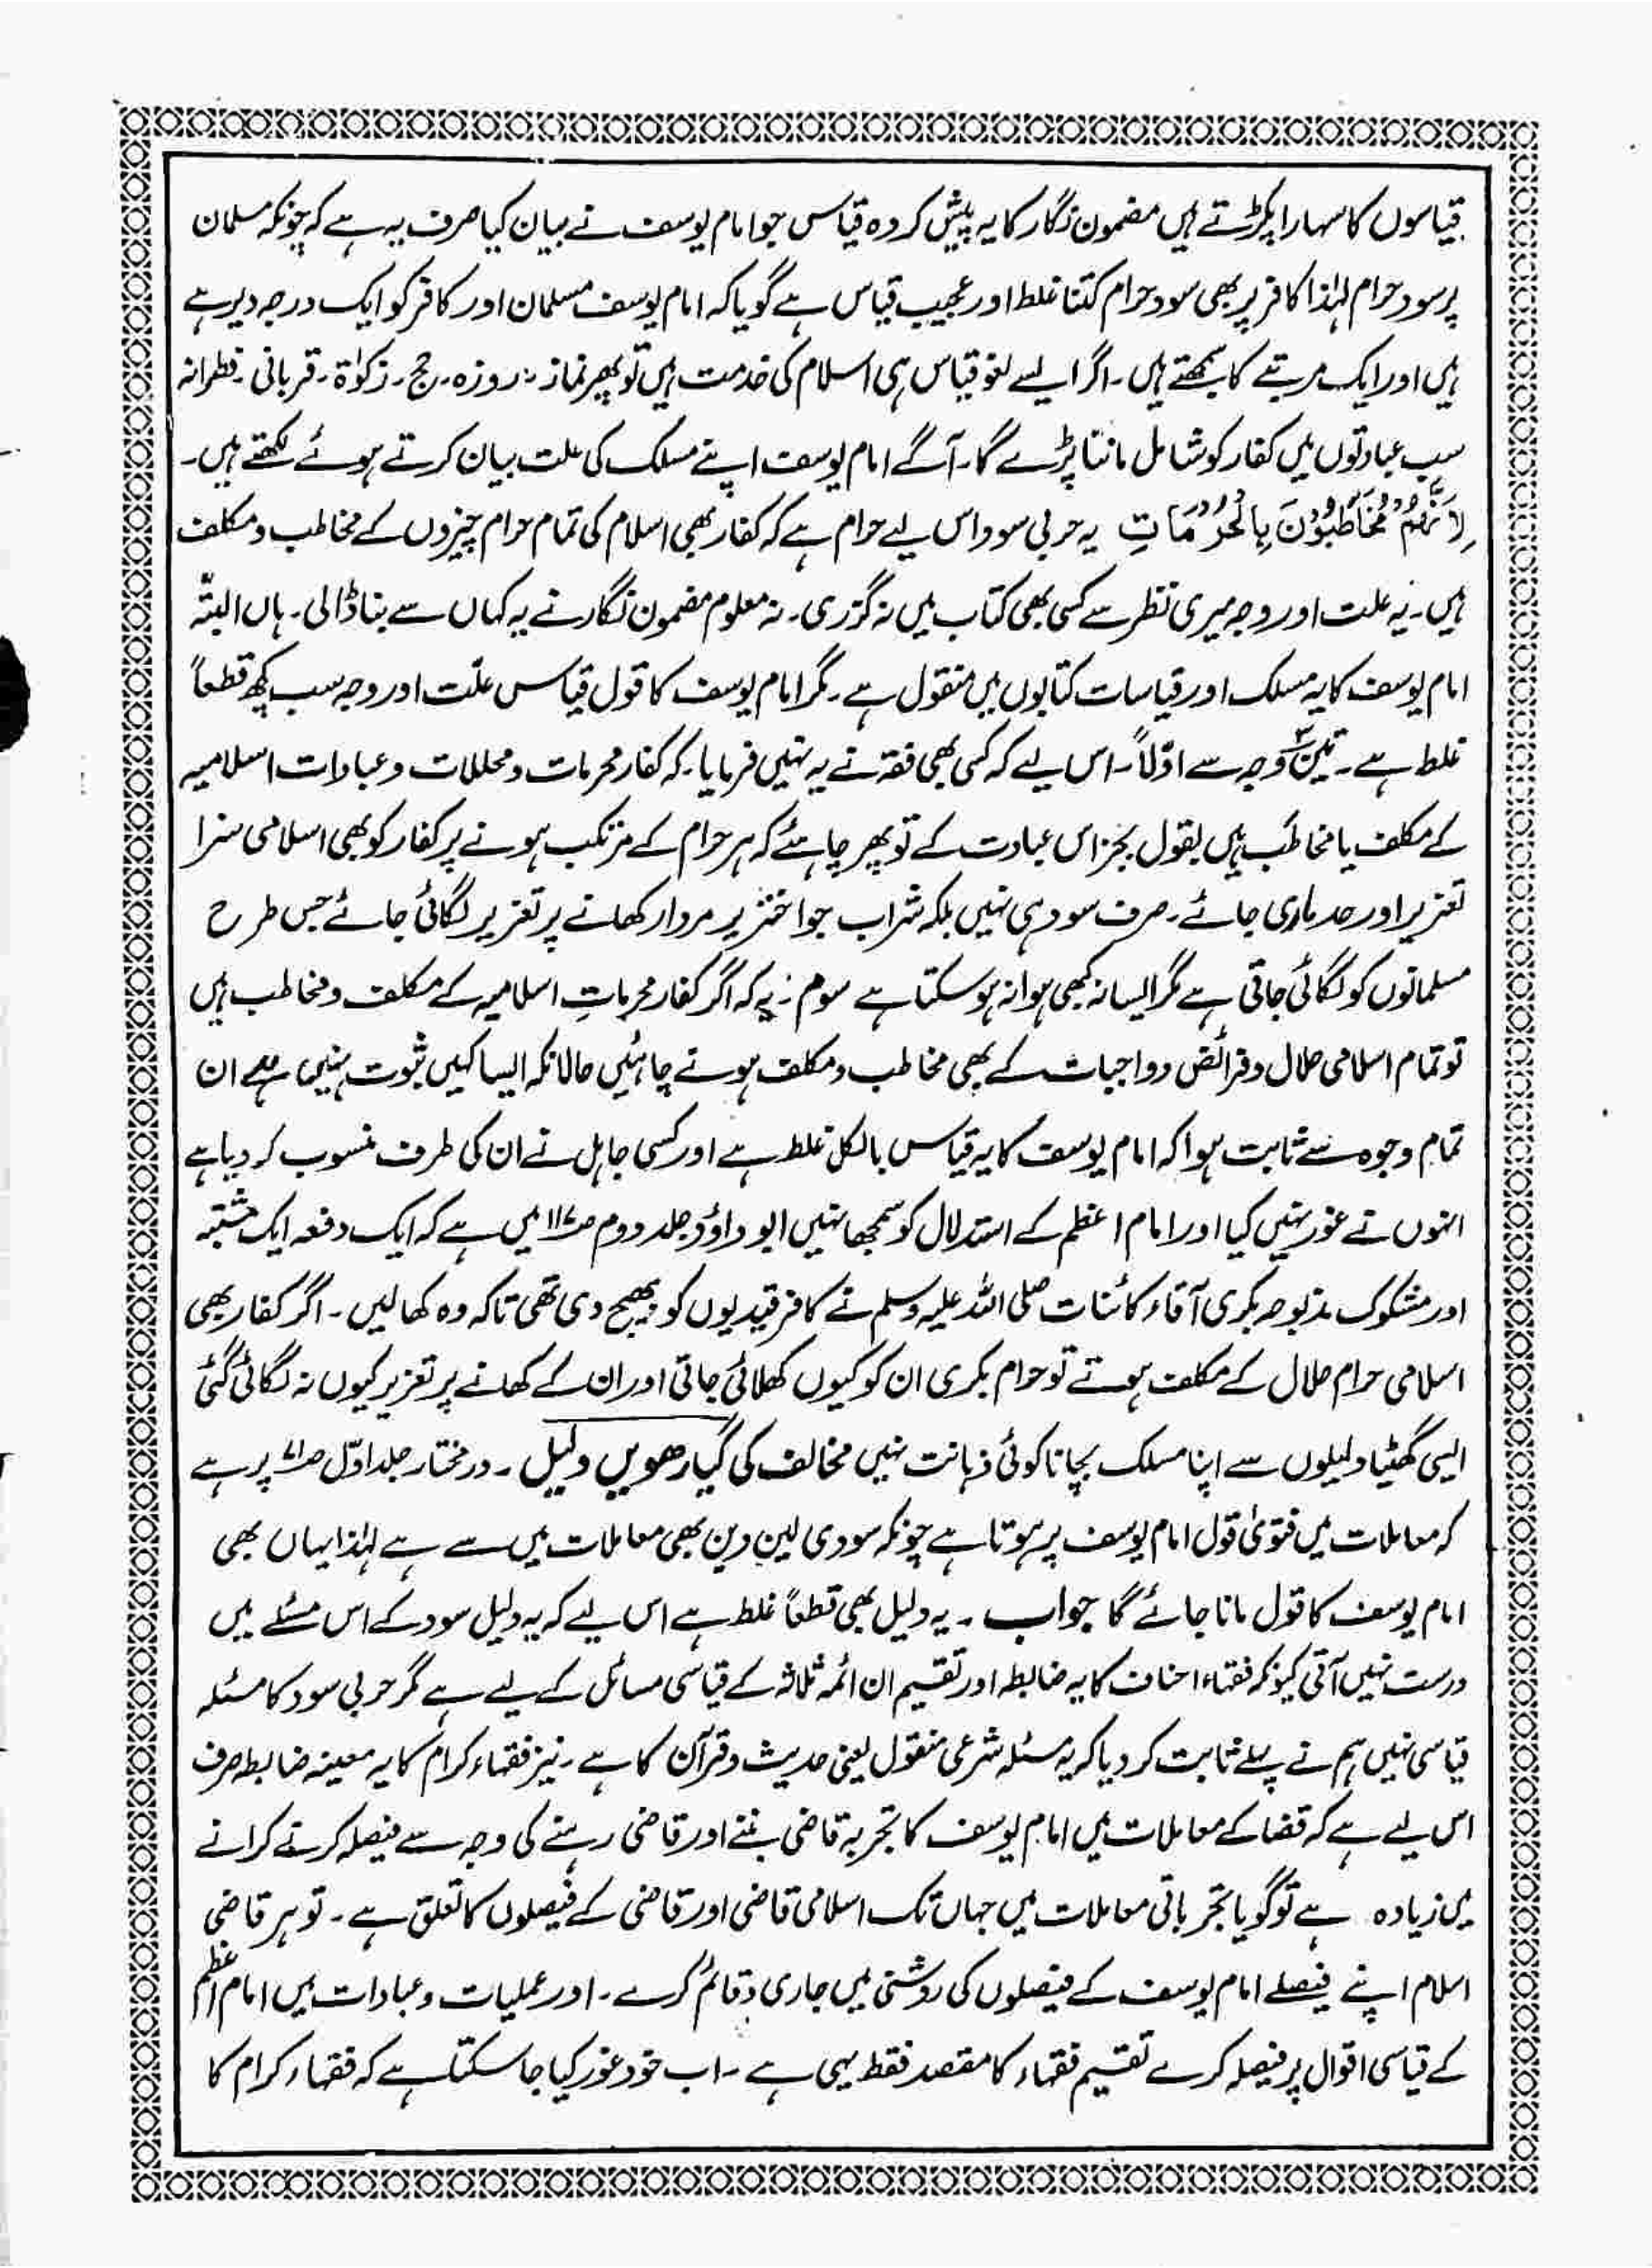 قیاسوں کا سہارا پکڑتے ہیں مضمون نگار کا یہ پیش کردہ قیاس جو امام یوسف نے بیان کیا صرف یہ ہے کہ چونکہ مسلمان
پر سود حرام لہٰذا کافر پر بھی سود حرام کتنا غلط اور عجیب قیاس ہے گویا کہ امام یوسف مسلمان اور کافر کو ایک درجہ دیر ہے
ہیں اور ایک مرتبے کا سمجھتے ہیں۔ اگر ایسے لغو قیاس ہی اسلام کی خدمت ہیں تو پھر نماز۔ روزہ۔ حج۔ زکوٰۃ۔ قربانی۔ فطرانہ
سب عبادتوں میں کفار کو شامل ماننا پڑے گا۔ آگے امام یوسف اپنے مسلک کی علت بیان کرتے ہوئے لکھتے ہیں۔
لِاَنَّھُمْ مُخَاطَبُوْنَ بِالْحُرُمَاتِ یہ حربی سود اس لیے حرام ہے کہ کفار بھی اسلام کی تمام حرام چیزوں کے مخاطب و مکلف
ہیں۔ یہ علت اور وجہ میری نظر سے کسی بھی کتاب میں نہ گزری۔ نہ معلوم مضمون نگار نے یہ کہاں سے بنا ڈالی۔ ہاں البتّہ
امام یوسف کا یہ مسلک اور قیاسات کتابوں میں منقول ہے۔ مگر امام یوسف کا قول قیاس علّت اور وجہ سب کچھ قطعاً
غلط ہے۔ تین وجہ سے اوّلاً۔ اس لیے کہ کسی بھی فقہ نے یہ نہیں فرمایا۔ کہ کفار محرمات و محللات و عبادات اسلامیہ
کے مکلف یا مخاطَب ہیں بقول بجز اس عبادت کے تو پھر چاہئے کہ ہر حرام کے مرتکب ہونے پر کفار کو بھی اسلامی سزا
تعزیر اور حد ماری جائے۔ صرف سود ہی نہیں بلکہ شراب جوا خنزیر مردار کھانے پر تعزیر لگائی جائے جس طرح
مسلمانوں کو لگائی جاتی ہے مگر ایسا نہ کبھی ہوا نہ ہو سکتا ہے سوم۔ یہ کہ اگر کفار محرماتِ اسلامیہ کے مکلف و مخاطب ہیں
تو تمام اسلامی حلال و فرائض و واجبات کے بھی مخاطب و مکلف ہونے چاہئیں حالانکہ ایسا کہیں ثبوت نہیں ہے ان
تمام وجوہ سے ثابت ہوا کہ امام یوسف کا یہ قیاس بالکل غلط ہے اور کسی جاہل نے ان کی طرف منسوب کر دیا ہے
انہوں نے غور نہیں کیا اور امام اعظم کے استدلال کو سمجھا نہیں ابو داؤد جلد دوم صـ۱۱۷ میں ہے کہ ایک دفعہ ایک مشتبہ
اور مشکوک مذبوحہ بکری آقاء کائنات صلی اللہ علیہ وسلم نے کافر قیدیوں کو بھیج دی تھی تاکہ وہ کھالیں۔ اگر کفار بھی
اسلامی حرام حلال کے مکلف ہوتے تو حرام بکری ان کو کیوں کھلائی جاتی اور ان کے کھانے پر تعزیر کیوں نہ لگائی گئی
ایسی گھٹیا دلیلوں سے اپنا مسلک بچانا کوئی ذہانت نہیں مخالف کی گیارھویں دلیل۔ درمختار جلد اوّل صـ۷۱ پر ہے
کہ معاملات میں فتویٰ قول امام یوسف پر ہوتا ہے چونکہ سودی لین دین بھی معاملات میں سے ہے لہٰذا یہاں بھی
امام یوسف کا قول مانا جائے گا جواب۔ یہ دلیل بھی قطعاً غلط ہے اس لیے کہ یہ دلیل سود کے اس مسئلے میں
درست نہیں آتی کیونکہ فقہاء احناف کا یہ ضابطہ اور تقسیم ان ائمہ ثلاثہ کے قیاسی مسائل کے لیے ہے مگر حربی سود کا مسئلہ
قیاسی نہیں ہم نے پہلے ثابت کر دیا کہ یہ مسئلہ شرعی منقول یعنی حدیث و قرآن کا ہے۔ نیز فقہاء کرام کا یہ معینہ ضابطہ صرف
اس لیے ہے کہ قضا کے معاملات میں امام یوسف کا تجربہ قاضی بننے اور قاضی رہنے کی وجہ سے فیصلہ کرنے کرانے
میں زیادہ ہے تو گویا تجرباتی معاملات میں جہاں تک اسلامی قاضی اور قاضی کے فیصلوں کا تعلق ہے۔ تو ہر قاضی
اسلام اپنے فیصلے امام یوسف کے فیصلوں کی روشنی میں جاری و قائم کرے۔ اور عملیات و عبادات میں امام اعظم
کے قیاسی اقوال پر فیصلہ کرے تقسیم فقہاء کا مقصد فقط یہی ہے۔ اب خود غور کیا جا سکتا ہے کہ فقہاء کرام کا